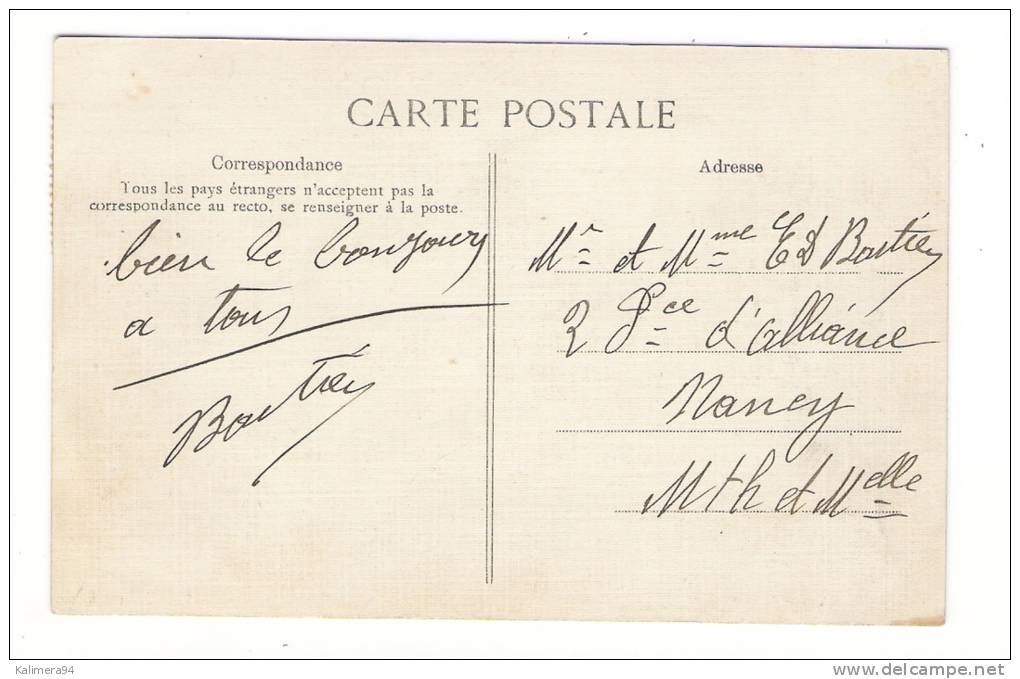 CARTE POSTALE
Correspondance
Tous les pays étrangers n'acceptent pas la
correspondance au recto, se renseigner à la poste.
bien le bonjour
a tous
Boutiey
Adresse
Mr et Mme ED Boutiey
2 Pce d'alliance
Nancy
Mth et Melle
Kalimera94
www.delcampe.net